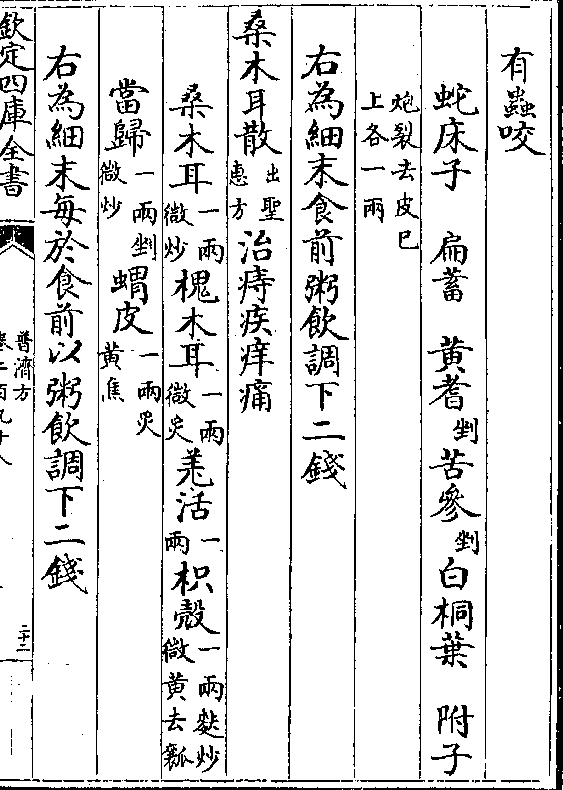 有蟲咬
蛇床子 扁蓄 黄耆剉苦參剉白桐葉 附子
炮裂去皮已上各一兩
右為細末食前粥飲調下二錢
桑木耳散出聖惠方治痔疾痒痛
桑木耳一兩微炒槐木耳一兩微炙羗活一兩枳殻一兩麩炒微黄去瓤
當歸一兩剉微炒蝟皮一兩炙黄焦
右為細末每於食前以粥飲調下二錢
欽定四庫全書
普濟方
二十二